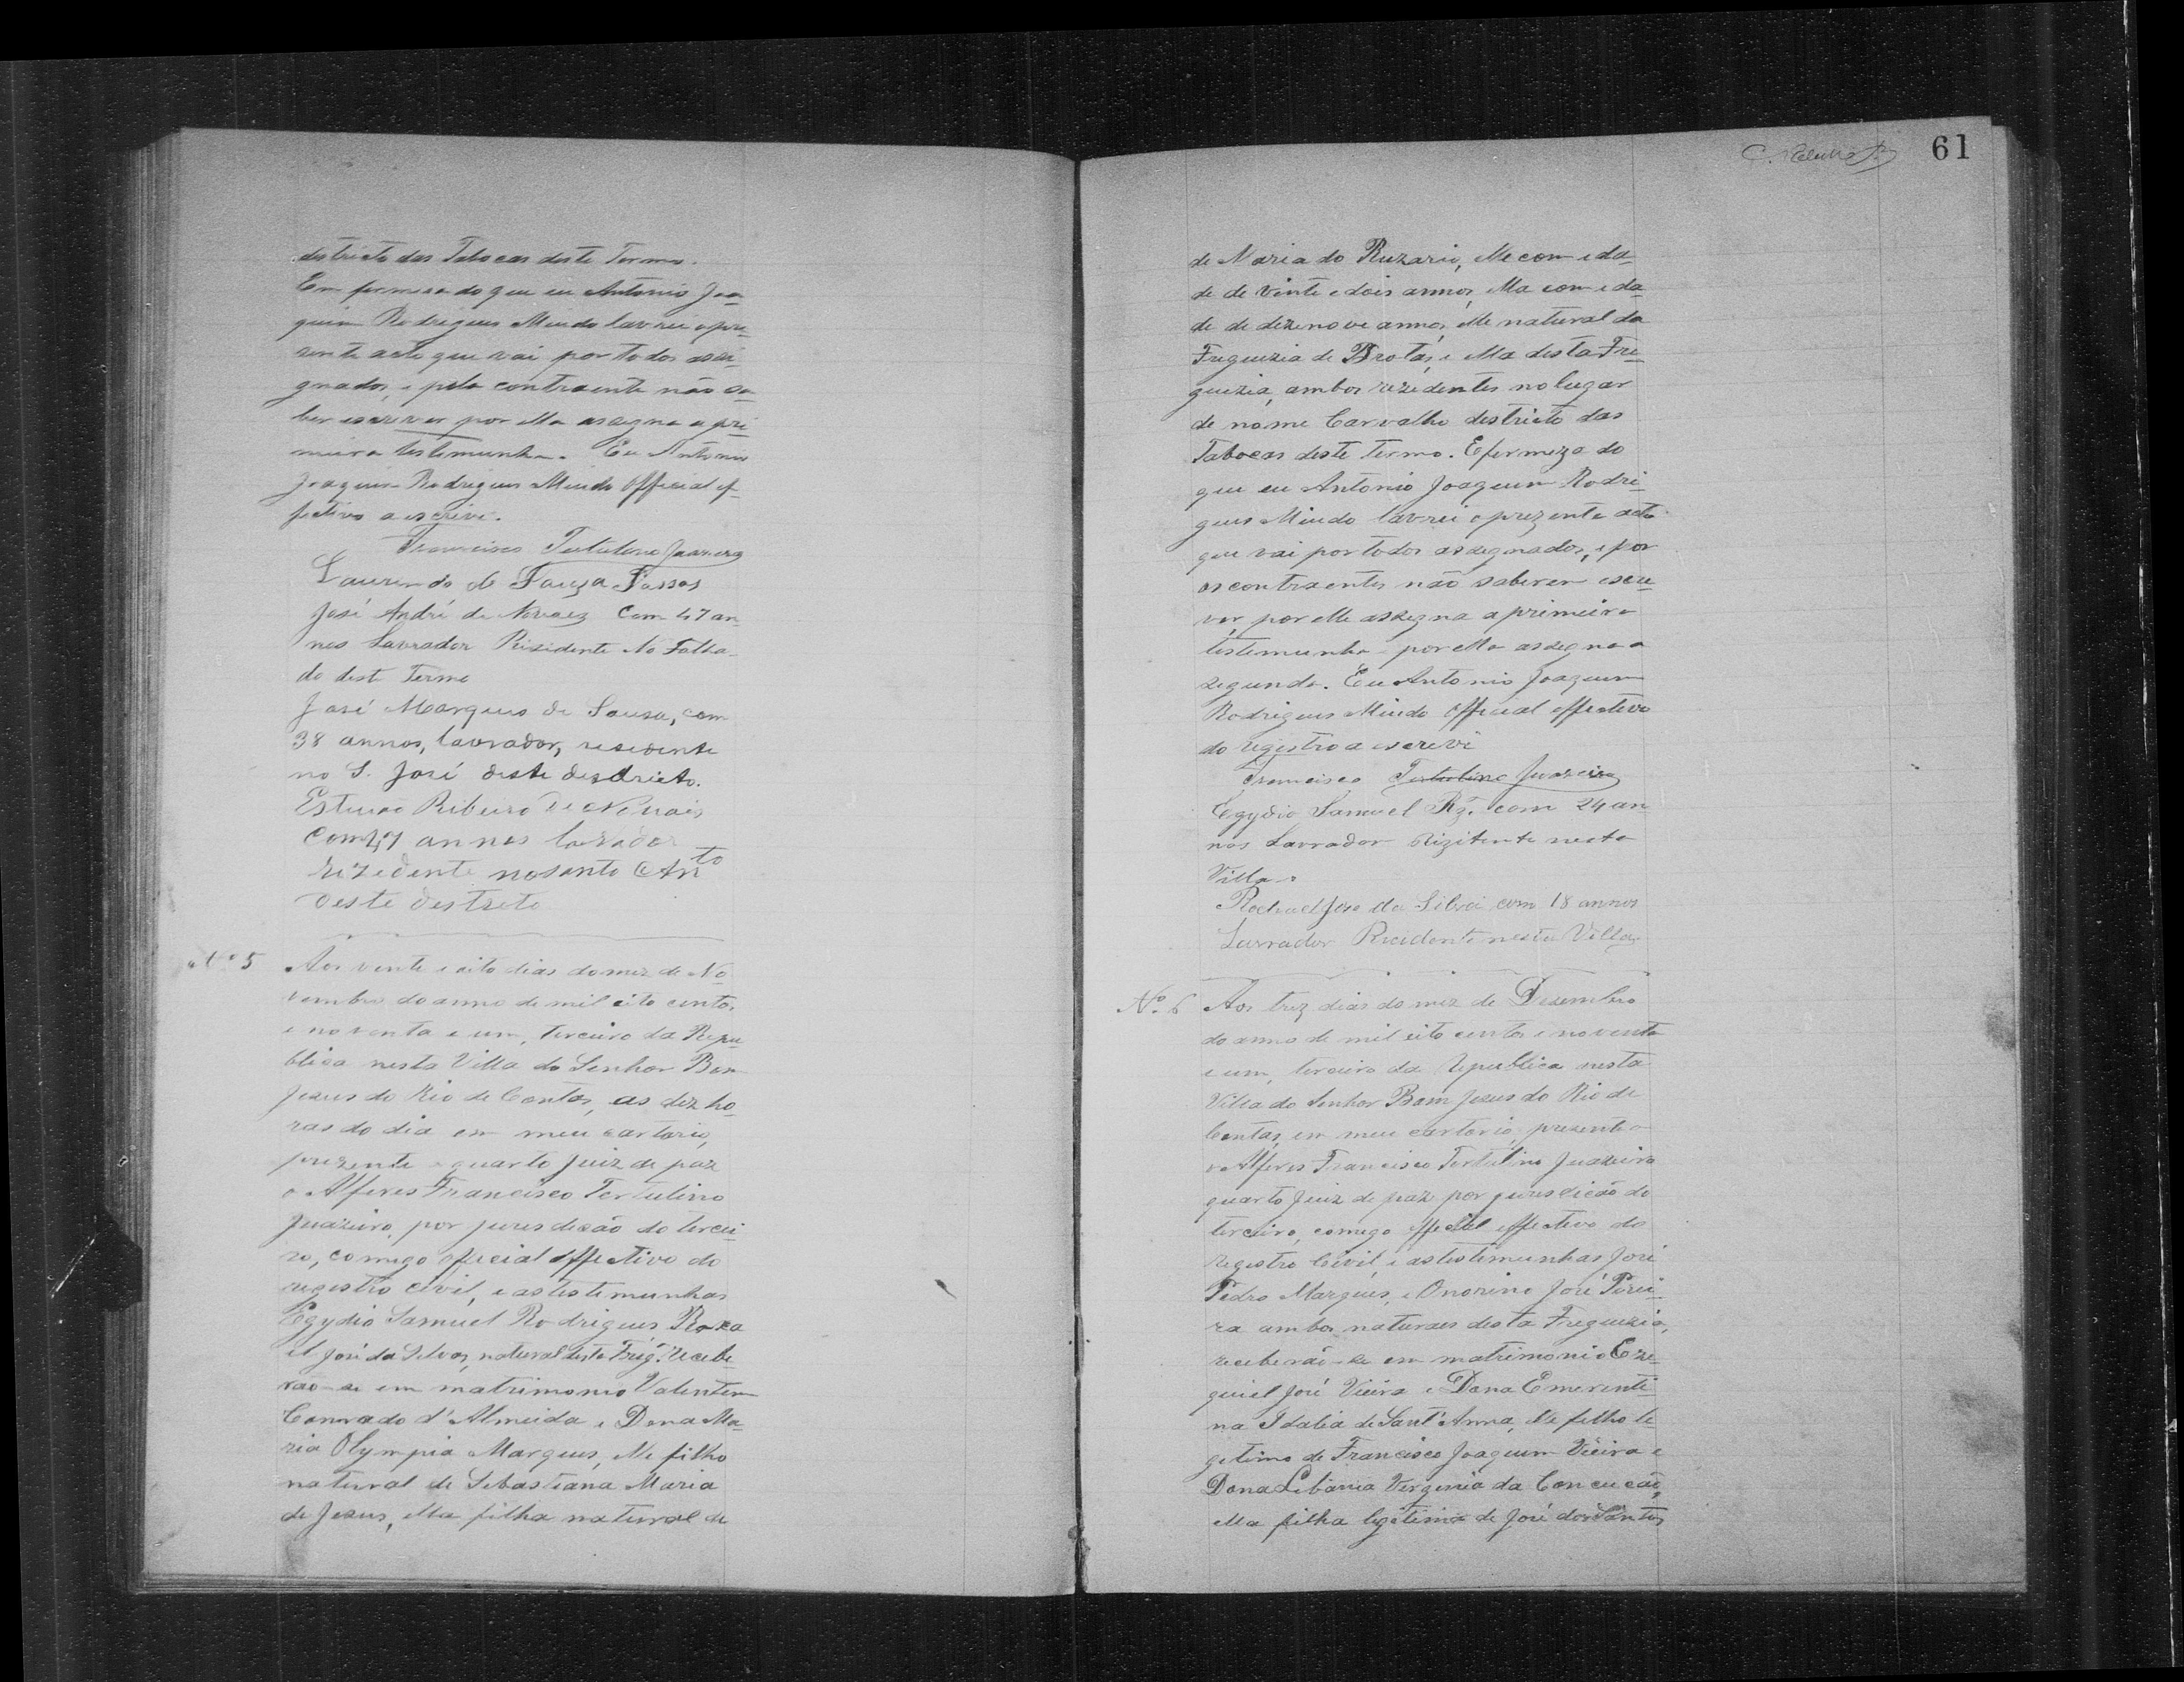 destricto das Tabocas deste Termo.
Em firmesa do que eu Antonio Joa-
quim Rodrigues Miudo lavrei o pre-
zente acto que vai por todos assi-
gnados, e pela contraente não sa-
ber escrever por ella assigna a pri-
meira testemunha. Eu Antonio
Joaquim Rodrigues Miudo Official ef-
fectivo a escrivi.
Francisco Tertulino Juazeiro
Laurindo de Souza Passos
José André de Novaez Com 47 an-
nos Lavrador Rizidente No Falha-
do deste Termo
José Marques de Sousa, com
38 annos, lavrador, residente
no S. José deste desdricto.
Ribeiro de Novais
Com 47 annos lavrador
rezedente no santo Anto
deste destreto
No 5 Aos vente e oito dias do mez de No-
vembro do anno de mil oito centos
e noventa e um, terceiro da Repu-
blica nesta Villa do Senhor Bom
Jesus do Rio de Contas, as dez ho-
ras do dia em meu cartorio,
prezente o quarto Juiz de paz
o Alferes Francisco Tertulino
Juazeiro, por juresdecão do tercei-
ro, comego official effectivo do
registro civil, e as testemunhas
Egydio Samuel Rodrigues Raxa
el José da Silva, natural desta Freg.ª recebe-
rão-se em matrimonio Valentim
Conrado d'Almeida e Dona Ma-
ria Olympia Marques, elle filho
natural de Sebastiana Maria
de Jesus, ella filha natural de
61
de Maria do Ruzario, elle com eda-
de de vinte e dois annos, ella com eda-
de de dezenove annos, elle natural da
Freguezia de Brotas, e ella desta Fre-
guezia, ambos rezedentes no lugar
de nome Carvalho destricto das
Tabocas deste Termo. E fermeza do
que eu Antonio Joaquim Rodri-
gues Miudo lavrei o prezente acto
que vai por todos assegnados, e por
os contraentes não saberem escre-
ver, por elle assegna a primeira
testemunha e por ella assegna a
segunda. Eu Antonio Joaquim
Rodrigues Miudo Official effectivo
do registro a escrevi
Francisco Tertulino Juazeiro
Egydio Samuel Rz. com 24 an
nos Lavrador Rizitente nesta
Villa
Rachael Jose da Silva com 18 annos
Lavrador Recidente nesta Villa
No. 6 Aos trez dias do mez de Desembro
do anno de mil oito centos e noventa
e um, terceiro da Republica nesta
Villa do Senhor Bom Jesus do Rio de
Contas, em meu cartorio, presente
o Alferes Francisco Tertulino Juazeiro
quarto Juiz de paz por juresdicão do
terceiro, comego official effectivo do
registro Civil, e as testemunhas José
Pedro Marques, e Onorino José Perei-
ra ambos naturaes desta Freguezia,
receberão-se em matrimonio Eze-
quiel José Vieira e Dona Emerenti-
na Idalia de Sant'Anna, elle filho le
getimo de Francisco Joaquim Vieira e
Dona Libania Vergenia da Conceicão,
ella filha legitima de José dos Santos